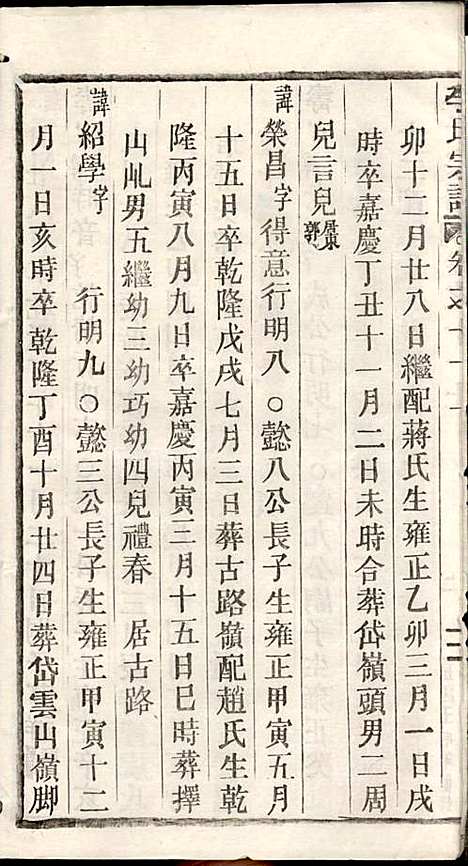 李氏宗譜 卷之十一 二
卯十二月廿八日繼配蔣氏生雍正乙卯三月一日戌
時卒嘉慶丁丑十一月二日未時合葬岱嶺頭男二周
兒言兒居東郭
諱榮昌字得意行明八○懿八公長子生雍正甲寅五月
十五日卒乾隆戊戌七月三日葬古路嶺配趙氏生乾
隆丙寅八月九日卒嘉慶丙寅三月十五日巳時葬擇
山乢男五繼幼三幼巧幼四兒禮春 居古路
諱紹學字 行明九○懿三公長子生雍正甲寅十二
月一日亥時卒乾隆丁酉十月廿四日葬岱雲山嶺脚